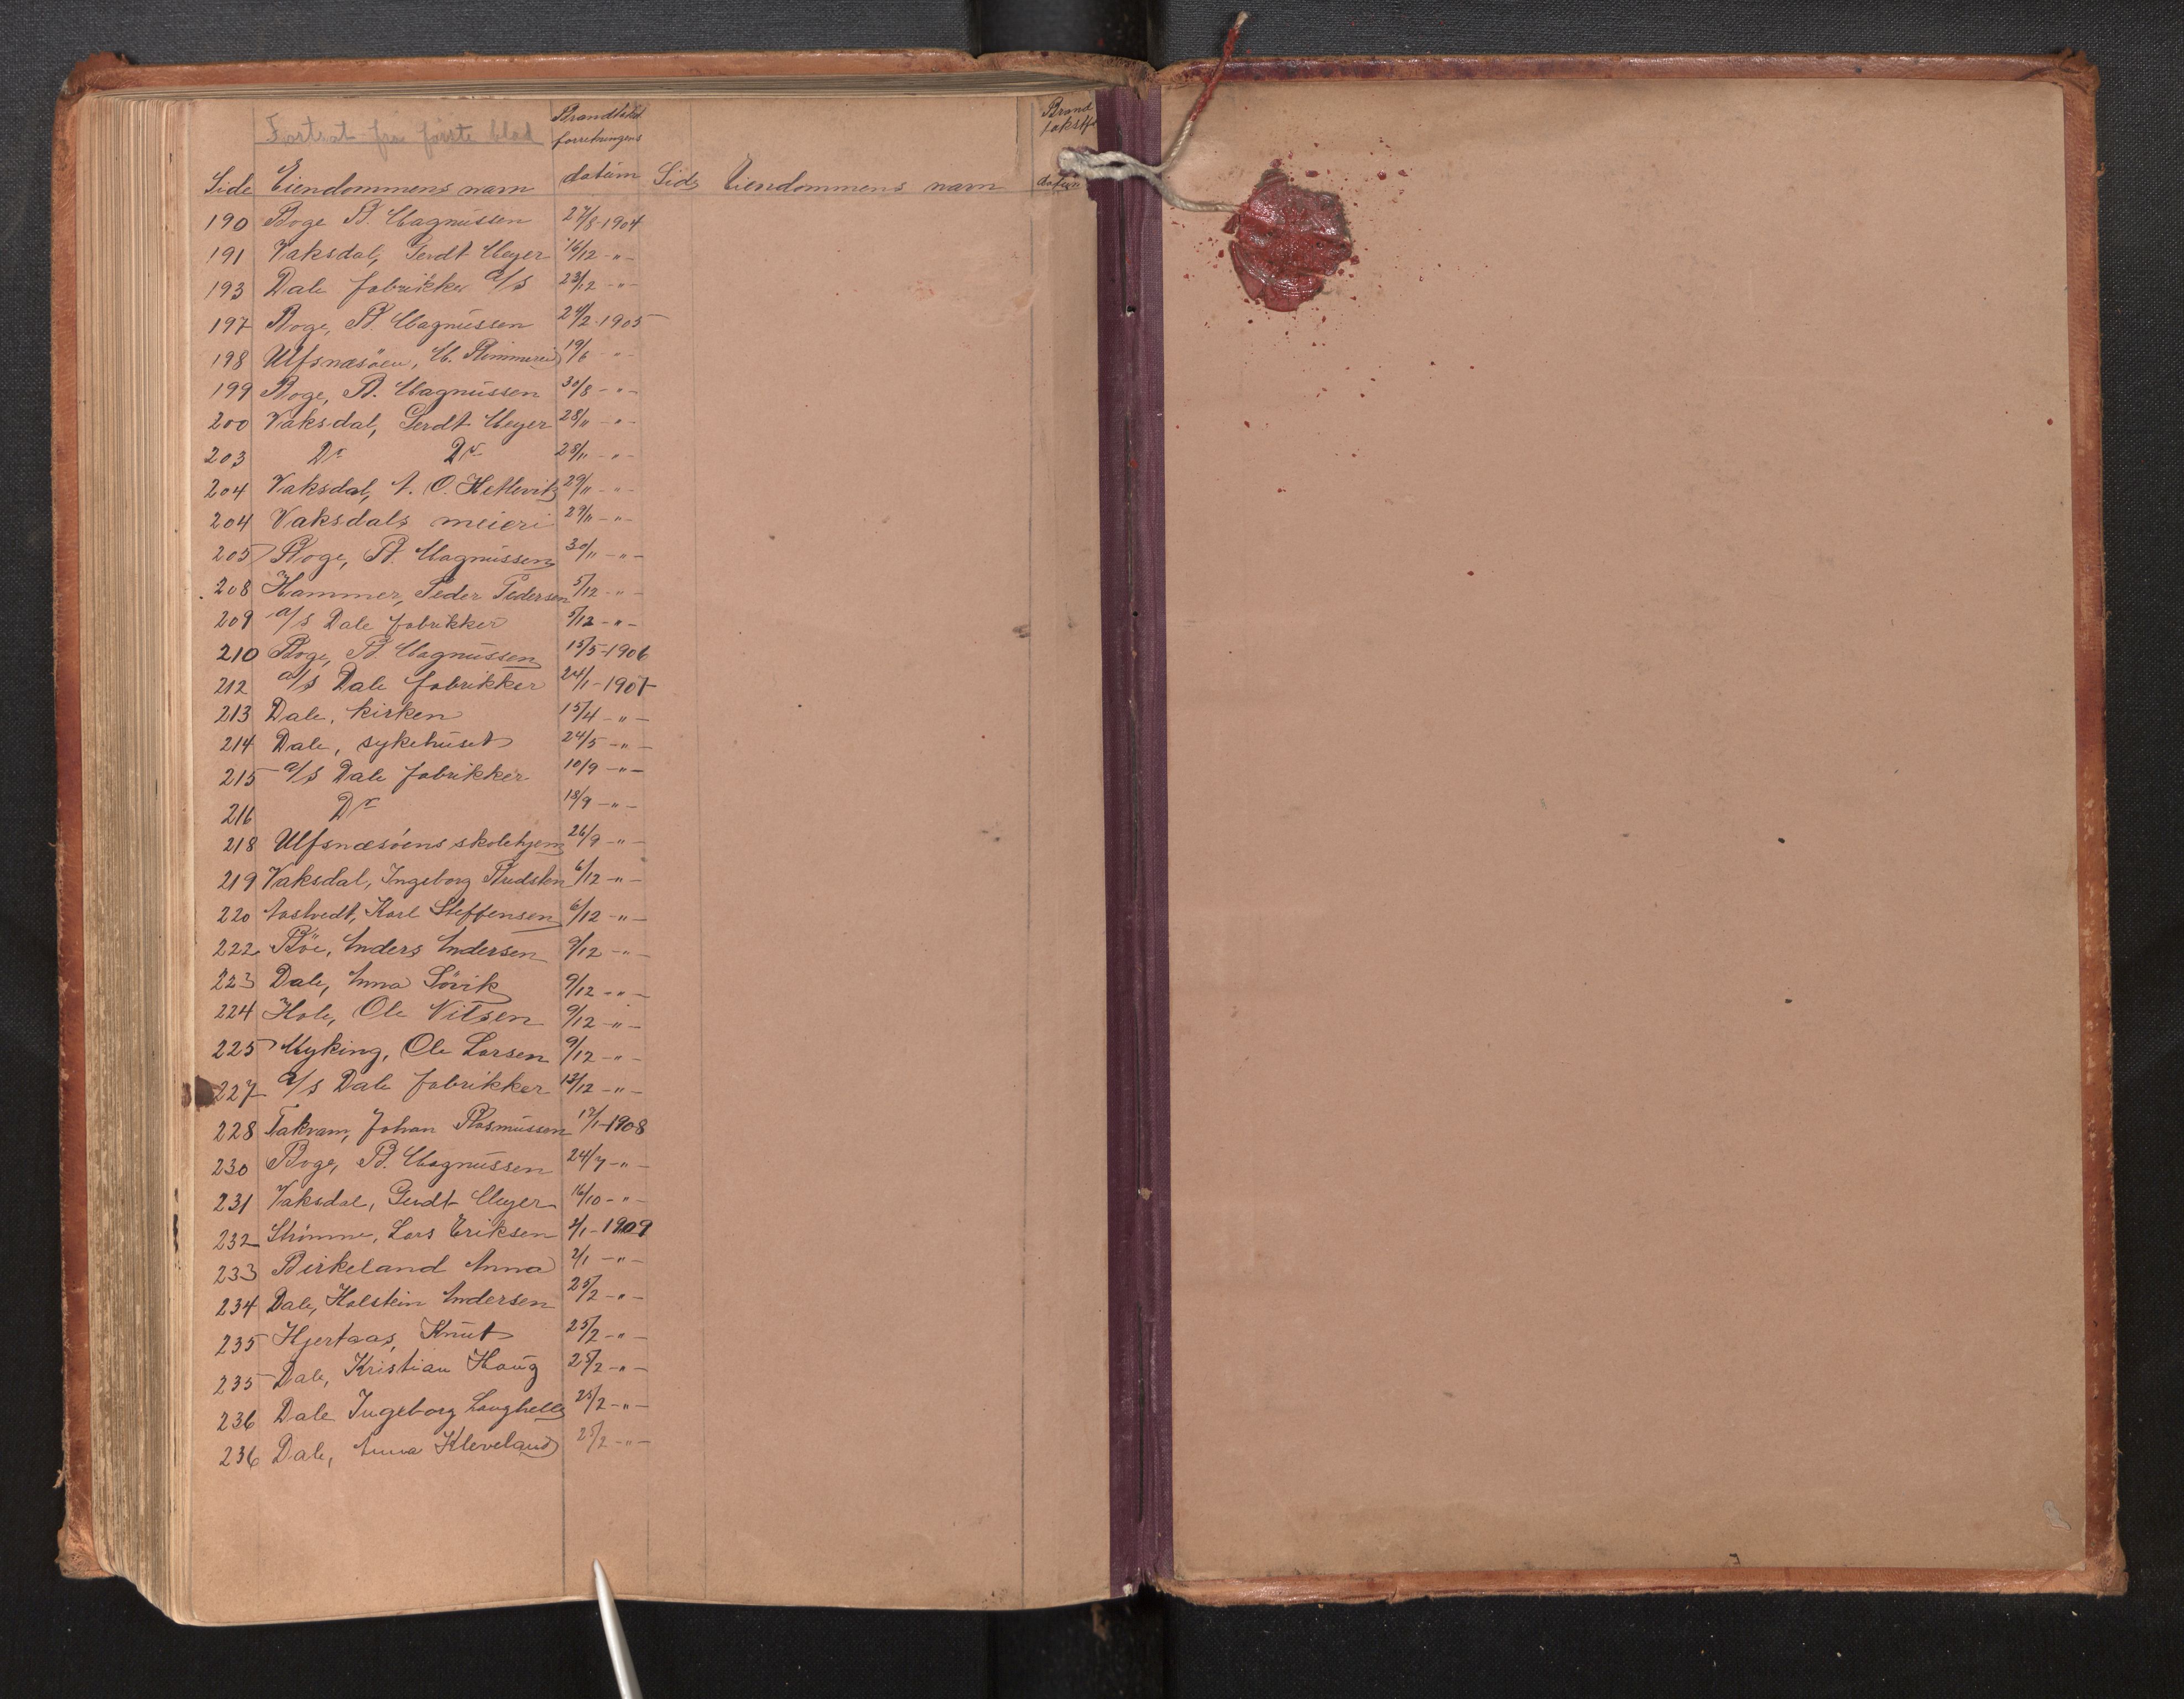 Fortsat fra første blad
Side Eiendommens navn Brandtakst forretningens datum Side Eiendommens navn Brand takstf. datum
190 Boge B. Magnussen 27/8-1904
191 Vaksdal, Gerdt Meyer 16/12 - " -
193 Dale fabrikker a/s 23/12 - " -
197 Boge, B. Magnussen 24/2-1905
198 Ulfsnæsöen, M. 19/6 - " -
199 Boge, B. Magnussen 30/8 - " -
200 Vaksdal, Gerdt Meyer 28/11 - " -
203 Do Do 28/11 - " -
204 Vaksdal, A. O. Hetlevik 29/11 - " -
204 Vaksdals meieri 29/11 - " -
205 Boge, B. Magnussen 30/11 - " -
208 Hammer, Peder Pedersen 5/12 - " -
209 a/s Dale fabrikker 5/12 - " -
210 Boge, B. Magnussen 15/5-1906
212 a/s Dale fabrikker 24/1-1907
213 Dale, kirken 15/4 - " -
214 Dale, sykehuset 24/5 - " -
215 a/s Dale fabrikker 10/9 - " -
216 Do 18/9 - " -
218 Ulfsnæsöens skolehjem 26/9 - " -
219 Vaksdal, Ingeborg 6/12 - " -
220 Karl Steffensen 6/12 - " -
222 Böe, Anders Andersen 9/12 - " -
223 Dale, Anna Sövik 9/12 - " -
224 Hole, Ole Nilsen 9/12 - " -
225 Myking, Ole Larsen 9/12 - " -
227 a/s Dale fabrikker 13/12 - " -
228 Takvam, Johan Rasmussen 17/1-1908
230 Boge, B. Magnussen 24/7 - " -
231 Vaksdal, Gerdt Meyer 16/10 - " -
232 Strömme, Lars Eriksen 2/1-1909
233 Birkeland Anna 2/1 - " -
234 Dale, Holstein Andersen 25/2 - " -
235 Hjertaas, Knut 25/2 - " -
235 Dale, Kristian Haug 25/2 - " -
236 Dale Ingeborg Langhelle 25/2 - " -
236 Dale, Anna Kleveland 25/2 - " -